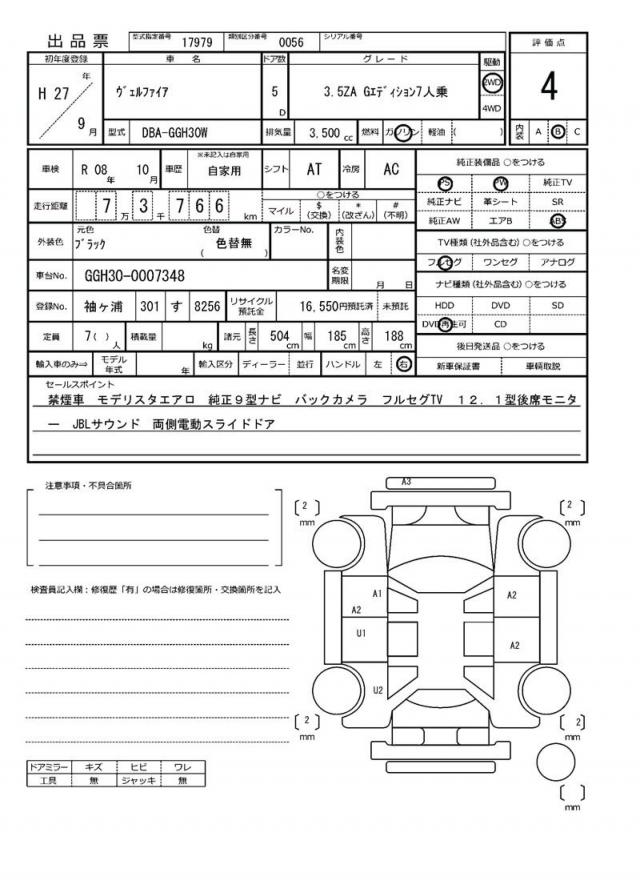 出品票 型式指定番号 17979 類別区分番号 0056 シリアル番号
評価点
4
初年度登録 車名 ドア数 グレード 駆動
H 27 年 9 月 ヴェルファイア 5 D 3.5ZA Gエディション7人乗 2WD 4WD
型式 DBA-GGH30W 排気量 3,500 cc 燃料 ガソリン 軽油 ( ) 内装 A B C
車検 R 08 年 10 月 車歴 ※未記入は自家用 自家用 シフト AT 冷房 AC
走行距離 7 万 3 千 7 6 6 km ○をつける マイル $ (交換) * (改ざん) # (不明)
外装色 元色 ブラック 色替 ( 色替無 ) カラーNo. 内装色
車台No. GGH30-0007348 名変期限 月 日
登録No. 袖ヶ浦 301 す 8256 リサイクル預託金 16,550円預託済 未預託
定員 7( ) 人 積載量 kg 諸元 長さ 504 cm 幅 185 cm 高さ 188 cm
輸入車のみ⇒ モデル年式 年 輸入区分 ディーラー 並行 ハンドル 左 右
純正装備品 ○をつける
PS PW 純正TV
純正ナビ 革シート SR
純正AW エアB ABS
TV種類(社外品含む)○をつける
フルセグ ワンセグ アナログ
ナビ種類(社外品含む)○をつける
HDD DVD SD
DVD再生可 CD
後日発送品 ○をつける
新車保証書 車輌取説
セールスポイント
禁煙車 モデリスタエアロ 純正9型ナビ バックカメラ フルセグTV 12.1型後席モニタ
ー JBLサウンド 両側電動スライドドア
注意事項・不具合箇所
検査員記入欄:修復歴「有」の場合は修復箇所・交換箇所を記入
ドアミラー キズ ヒビ ワレ
工具 無 ジャッキ 無
A3
[ 2 ] mm
[ 2 ] mm
A1
A2
A2
U1
A2
U2
[ 2 ] mm
[ 2 ] mm
[ ] mm